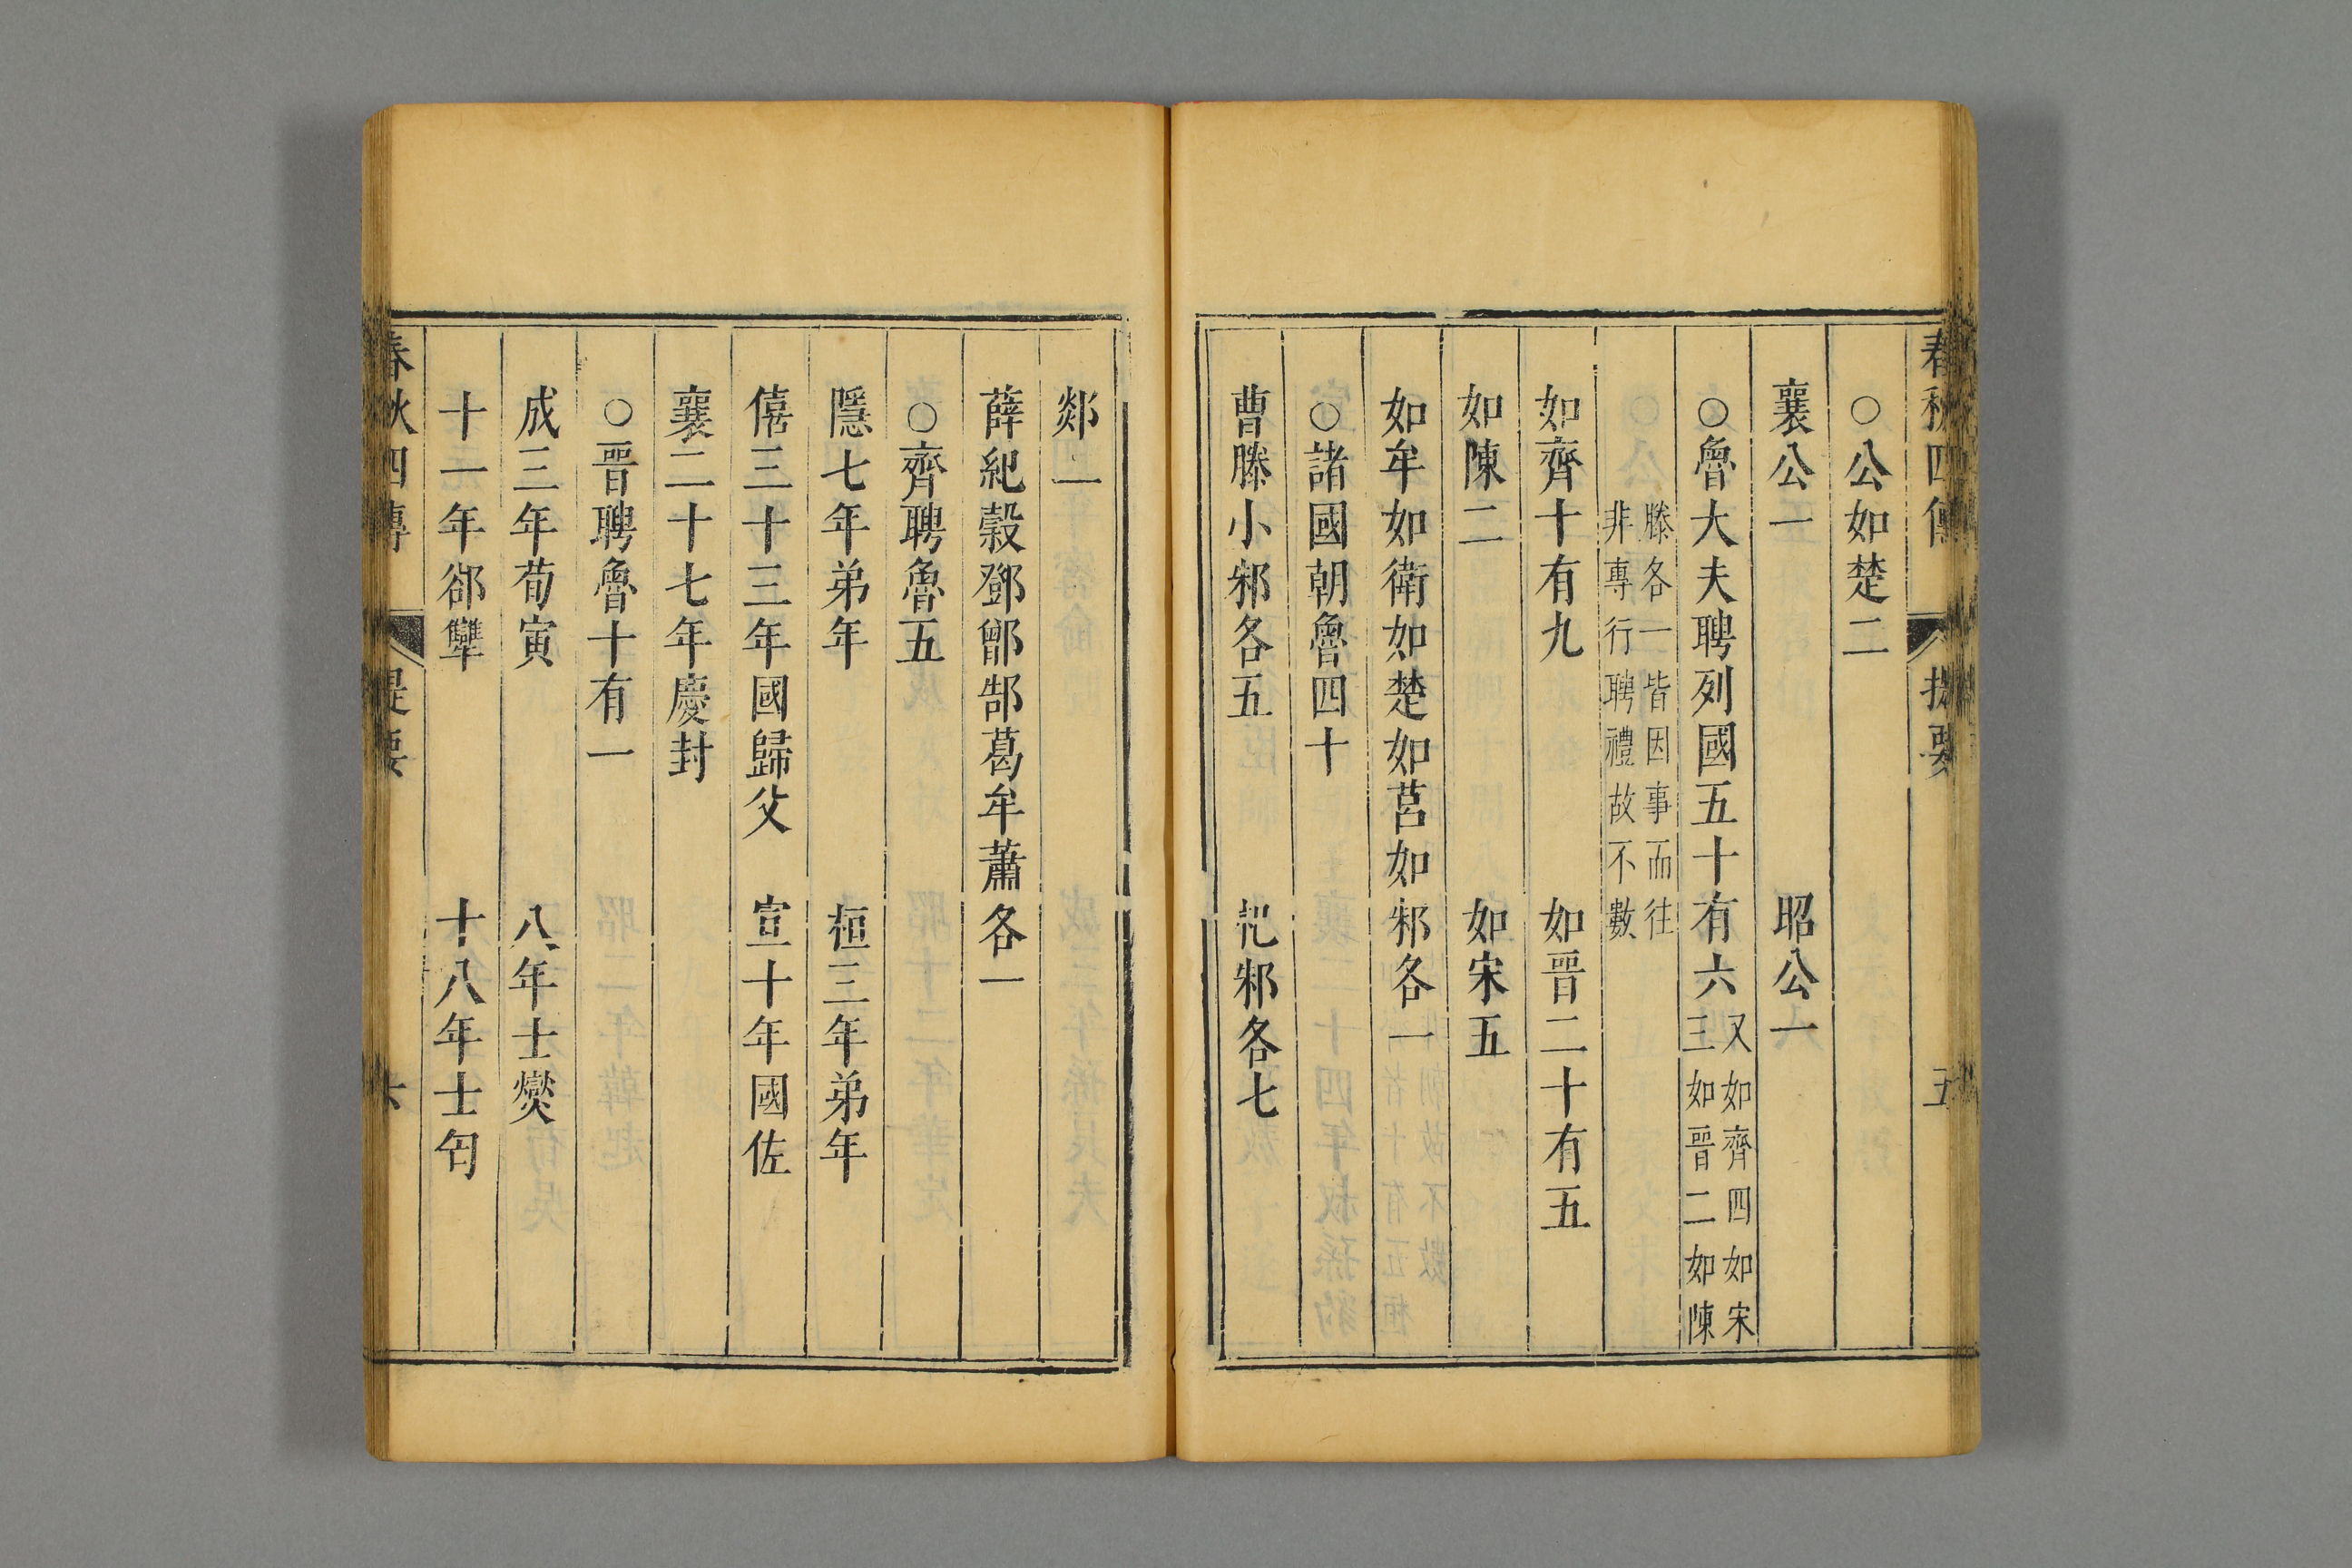 春秋四傳 提要 五
○公如楚二
襄公一 昭公一
○魯大夫聘列國五十有六 又如齊四如宋
三如晉二如陳
滕各一皆因事而往
非專行聘禮故不數
如齊十有九 如晉二十有五
如陳二 如宋五
如牟如衛如楚如莒如邾各一
○諸國朝魯四十
曹滕小邾各五 杞邾各七
郯一
薛紀穀鄧鄫郜葛牟蕭各一
○齊聘魯五
隱七年弟年 桓三年弟年
僖三十三年國歸父 宣十年國佐
襄二十七年慶封
○晉聘魯十有一
成三年荀寅 八年士燮
十一年郤犫 十八年士匄
春秋四傳 提要 六